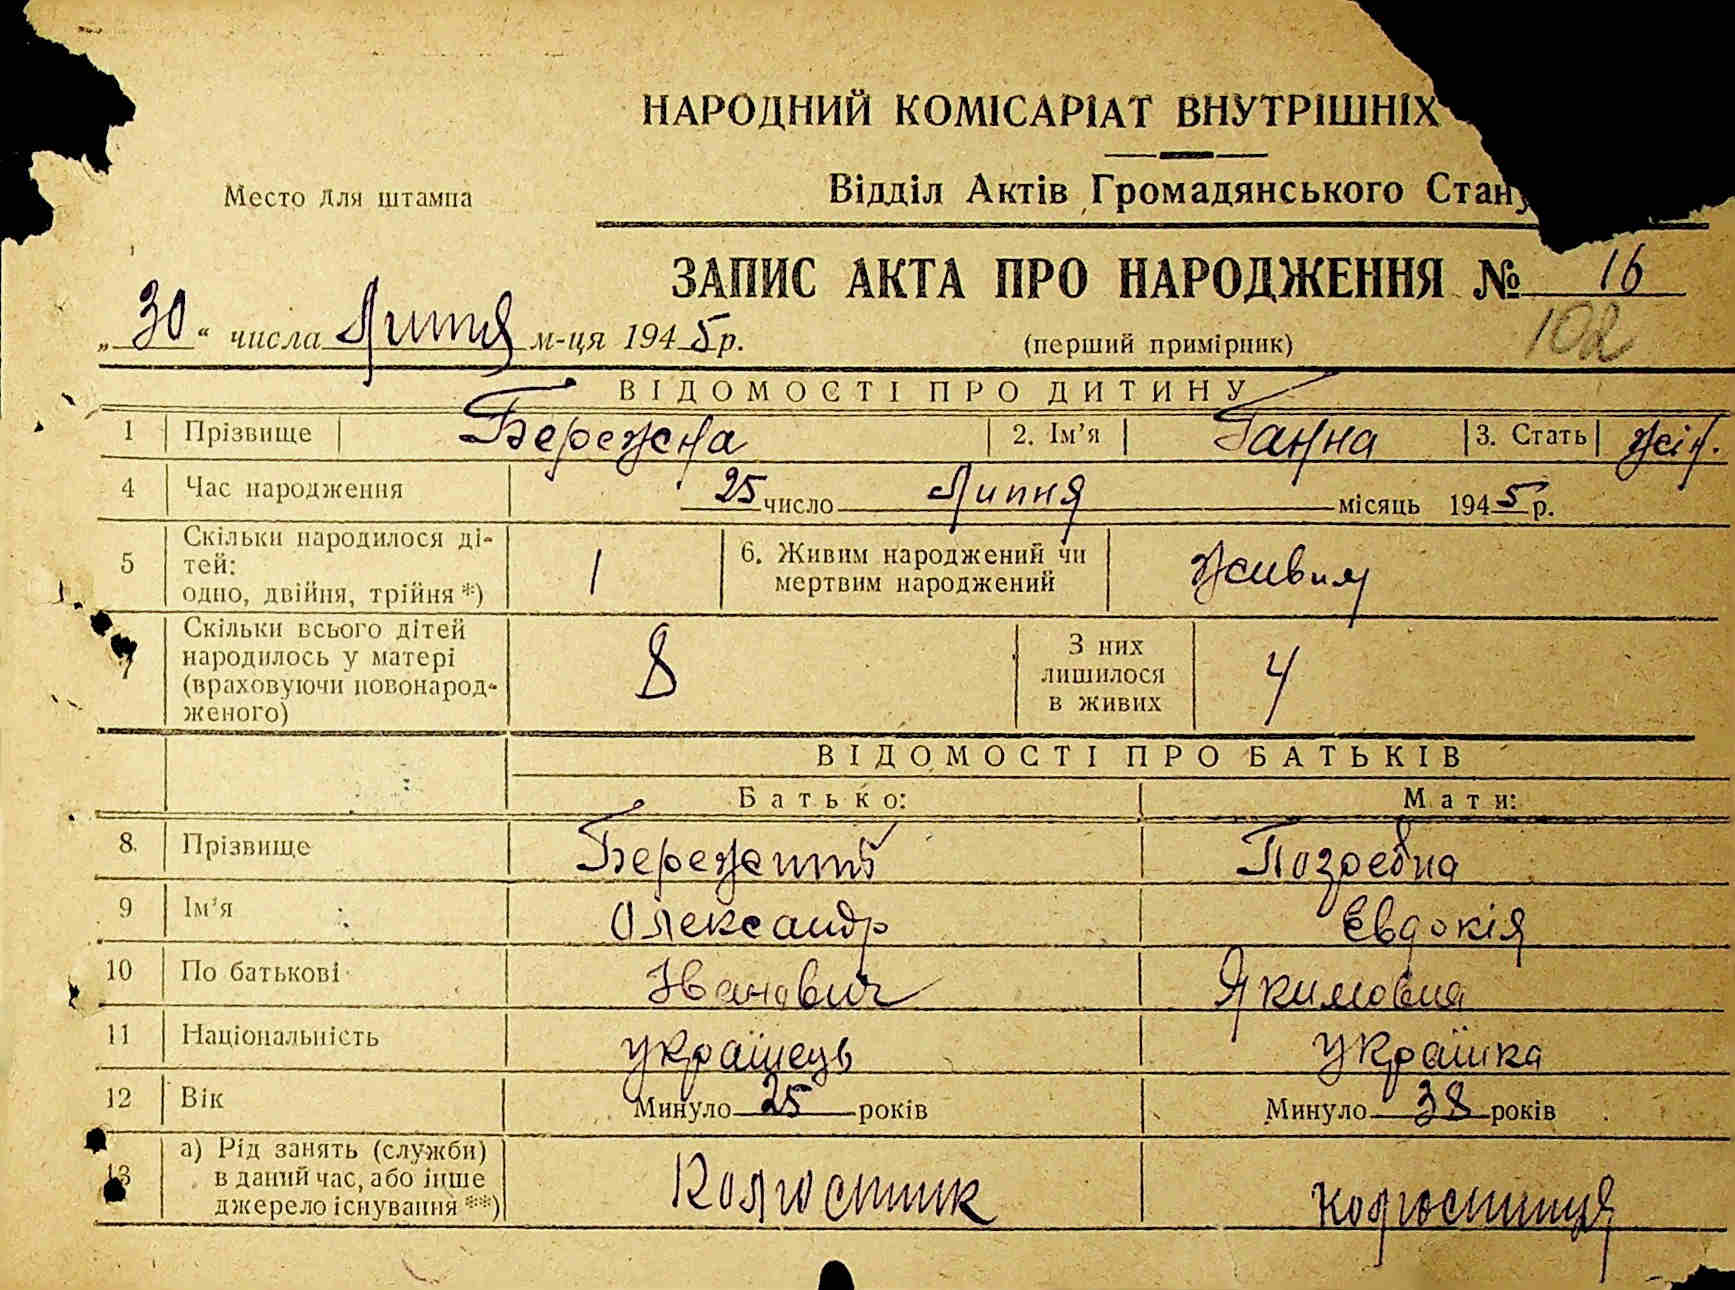 НАРОДНИЙ КОМІСАРІАТ ВНУТРІШНІХ
Место для штампа
Відділ Актів Громадянського Стану
ЗАПИС АКТА ПРО НАРОДЖЕННЯ № 16
„30“ числа Липня м-ця 1945 р.
(перший примірник)
102
ВІДОМОСТІ ПРО ДИТИНУ
1 Прізвище Бережна 2. Ім’я Ганна 3. Стать жін.
4 Час народження 25 число Липня місяць 1945 р.
5 Скільки народилося ді-
тей:
одно, двійня, трійня *) 1
6. Живим народжений чи
мертвим народжений Живим
7 Скільки всього дітей
народилось у матері
(враховуючи новонарод-
женого) 8
З них
лишилося
в живих 4
ВІДОМОСТІ ПРО БАТЬКІВ
Батько: Мати:
8. Прізвище Погребна
9 Ім’я Олександр Євдокія
10 По батькові Іванович Якимовна
11 Національність українець Українка
12 Вік Минуло 25 років Минуло 38 років
13 а) Рід занять (служби)
в даний час, або інше
джерело існування **) Колгоспник колгоспниця